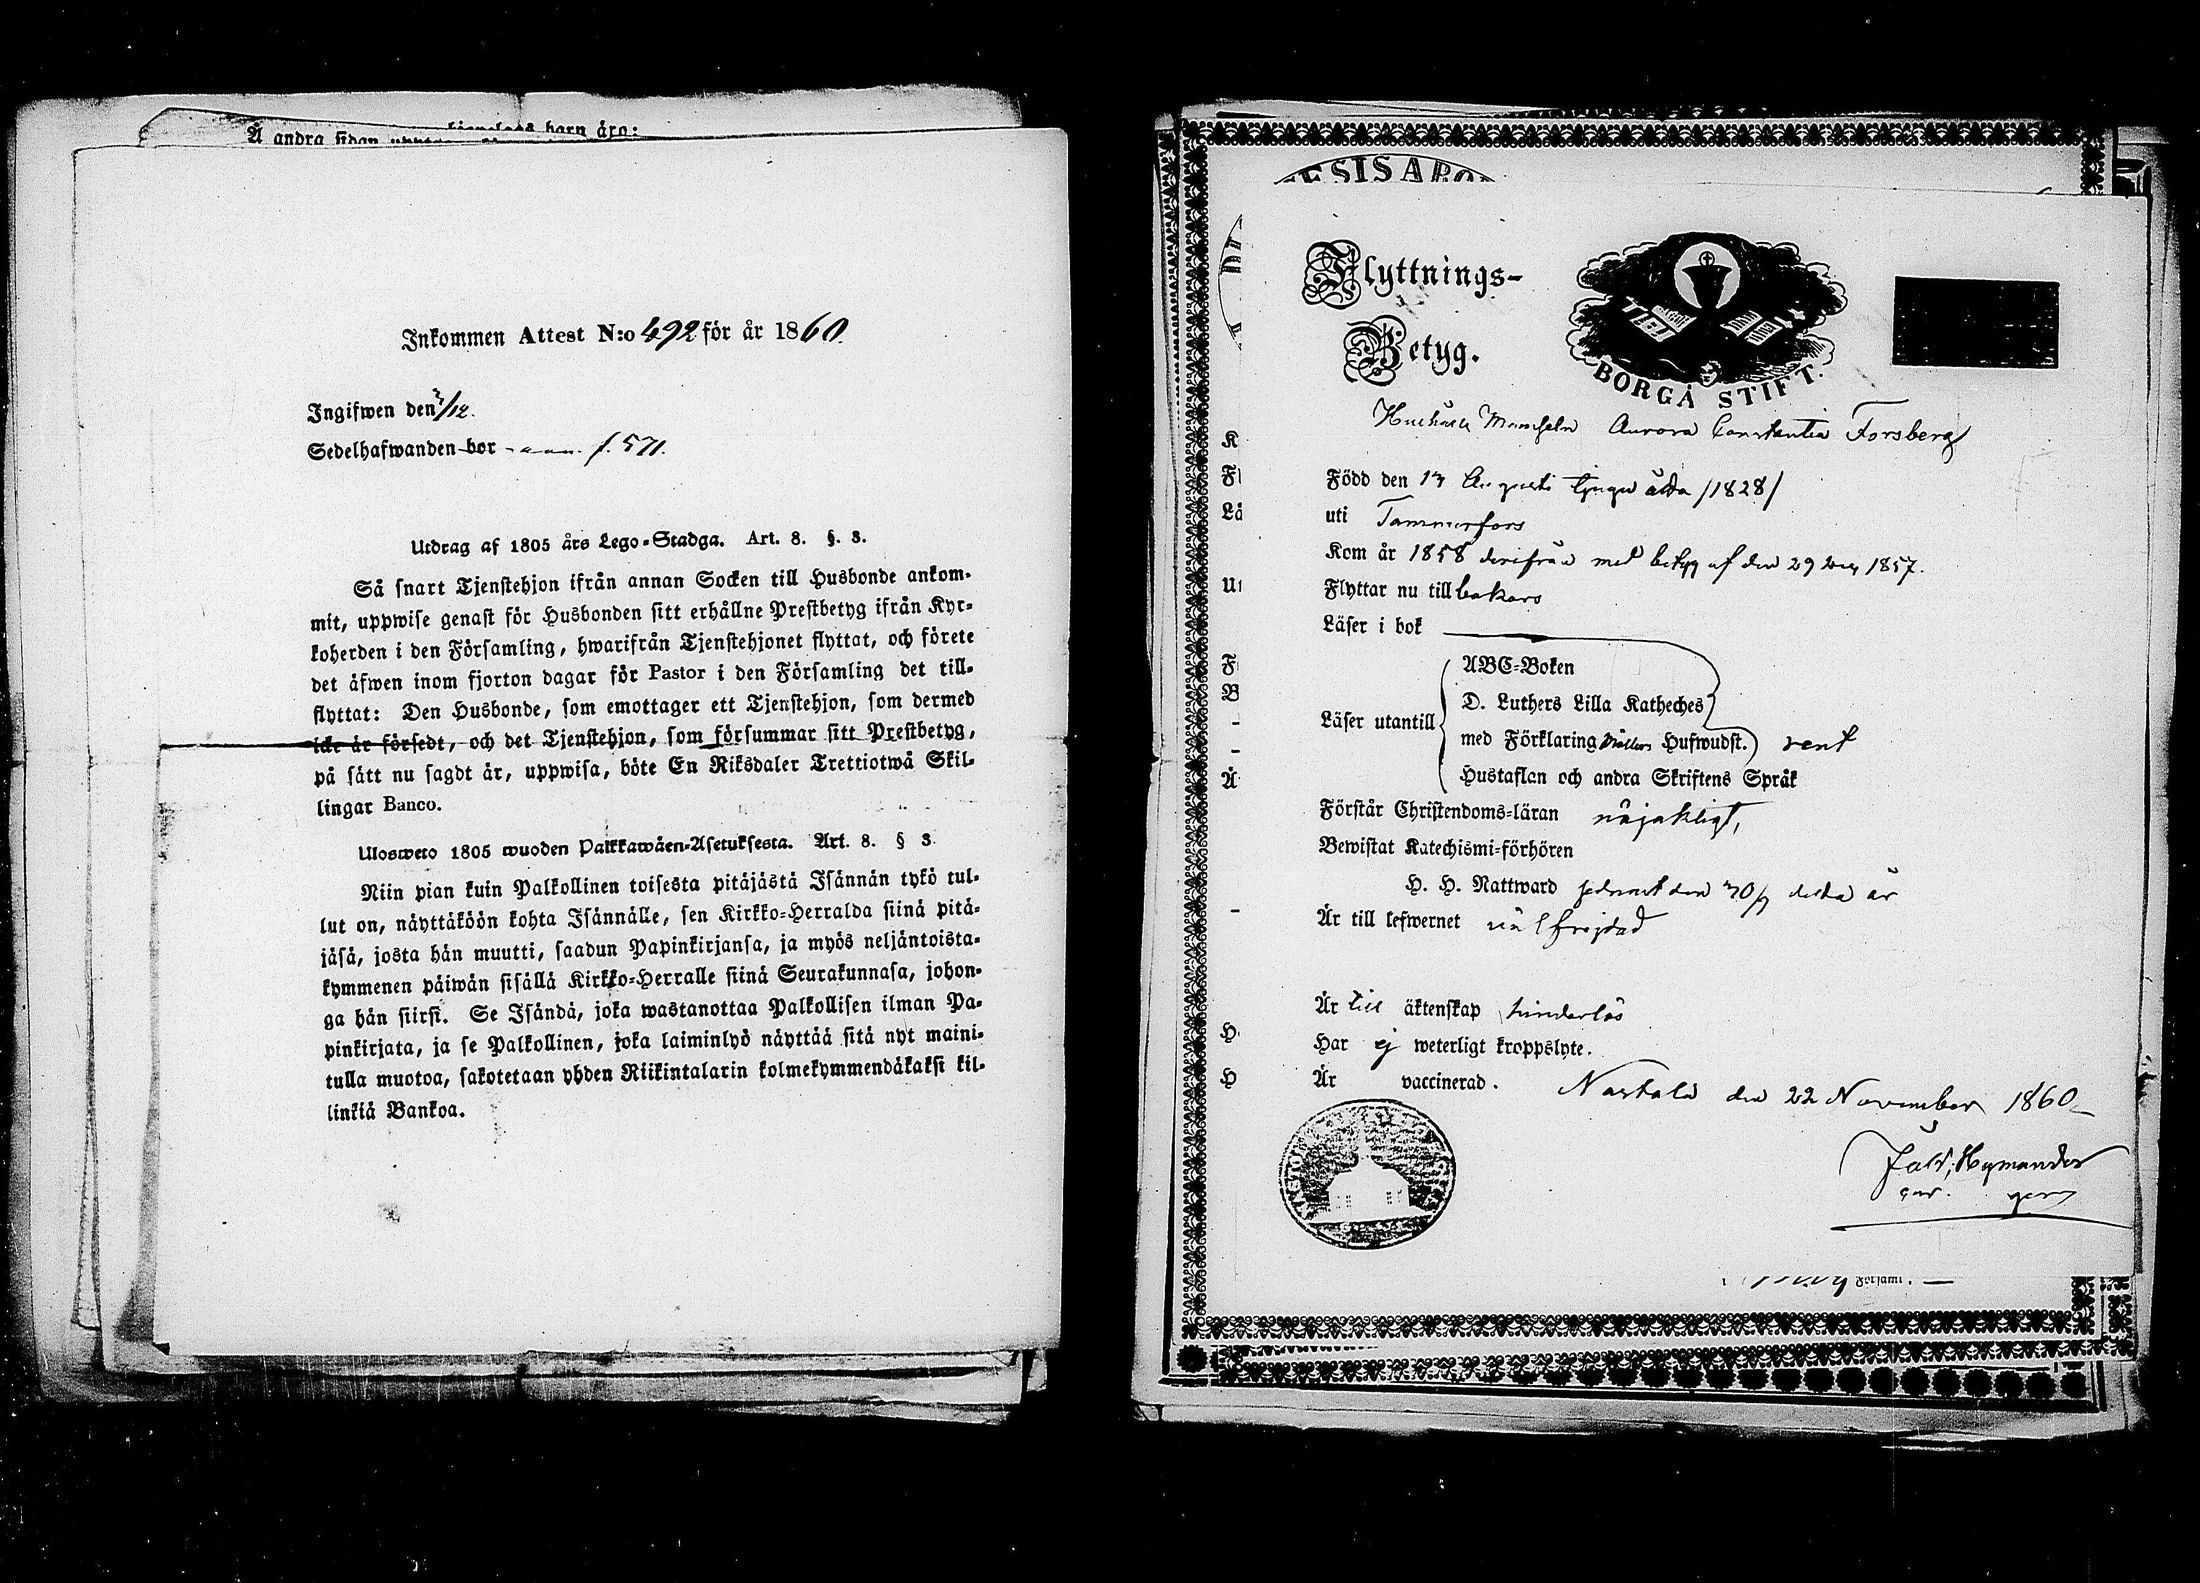 Å andra sidan
barn äro:
Inkommen Attest N:o 492 för år 1860.
Ingifwen den 3/12.
Sedelhafwanden bor f. 571.
Utdrag af 1805 års Lego-Stadga. Art. 8. §. 3.
Så snart Tjenstehjon ifrån annan Socken till Husbonde ankom-
mit, uppwise genast för Husbonden sitt erhållne Prestbetyg ifrån Kyr-
koherden i den Församling, hwarifrån Tjenstehjonet flyttat, och förete
det äfwen inom fjorton dagar för Pastor i den Församling det till-
flyttat: Den Husbonde, som emottager ett Tjenstehjon, som dermed
icke är försedt, och det Tjenstehjon, som försummar sitt Prestbetyg,
på sätt nu sagdt är, uppwisa, böte En Riksdaler Trettiotwå Skil-
lingar Banco.
Ulosweto 1805 wuoden Palkkawäen-Asetuksesta. Art. 8. § 3.
Niin pian kuin Palkollinen toisesta pitäjästä Isännän tykö tul-
lut on, näyttäköön kohta Isännälle, sen Kirkko-Herralda siinä pitä-
jäsä, josta hän muutti, saadun Papinkirjansa, ja myös neljäntoista-
kymmenen päiwän sisällä Kirkko-Herralle siinä Seurakunnasa, johon-
ga hän siirsi. Se Isändä, joka wastanottaa Palkollisen ilman Pa-
pinkirjata, ja se Palkollinen, joka laiminlyö näyttää sitä nyt maini-
tulla muotoa, sakotetaan yhden Riikintalarin kolmekymmendäkaksi kil-
linkiä Bankoa.
Flyttnings-
Betyg.
BORGÅ STIFT.
Mamseln Aurora Constantia Forsberg
Född den 13 Augusti tjugu åtta /1828/
uti Tammerfors
Kom år 1858 derifrån med betyg af den 29 Dec 1857.
Flyttar nu till bakars
Läser i bok
Läser utantill
ABC-Boken
D. Luthers Lilla Katheches
med Förklaring Möllers Hufwudst. rent
Hustaflan och andra Skriftens Språk
Förstår Christendoms-läran nöjaktigt,
Bewistat Katechismi-förhören
H. H. Nattward sednast den 30/9 detta år
Är till lefwernet väl frejdad
Är till äktenskap hinderlös
Har ej weterligt kroppslyte.
Är vaccinerad.
Nastola den 22 November 1860
Hymander
Församl.